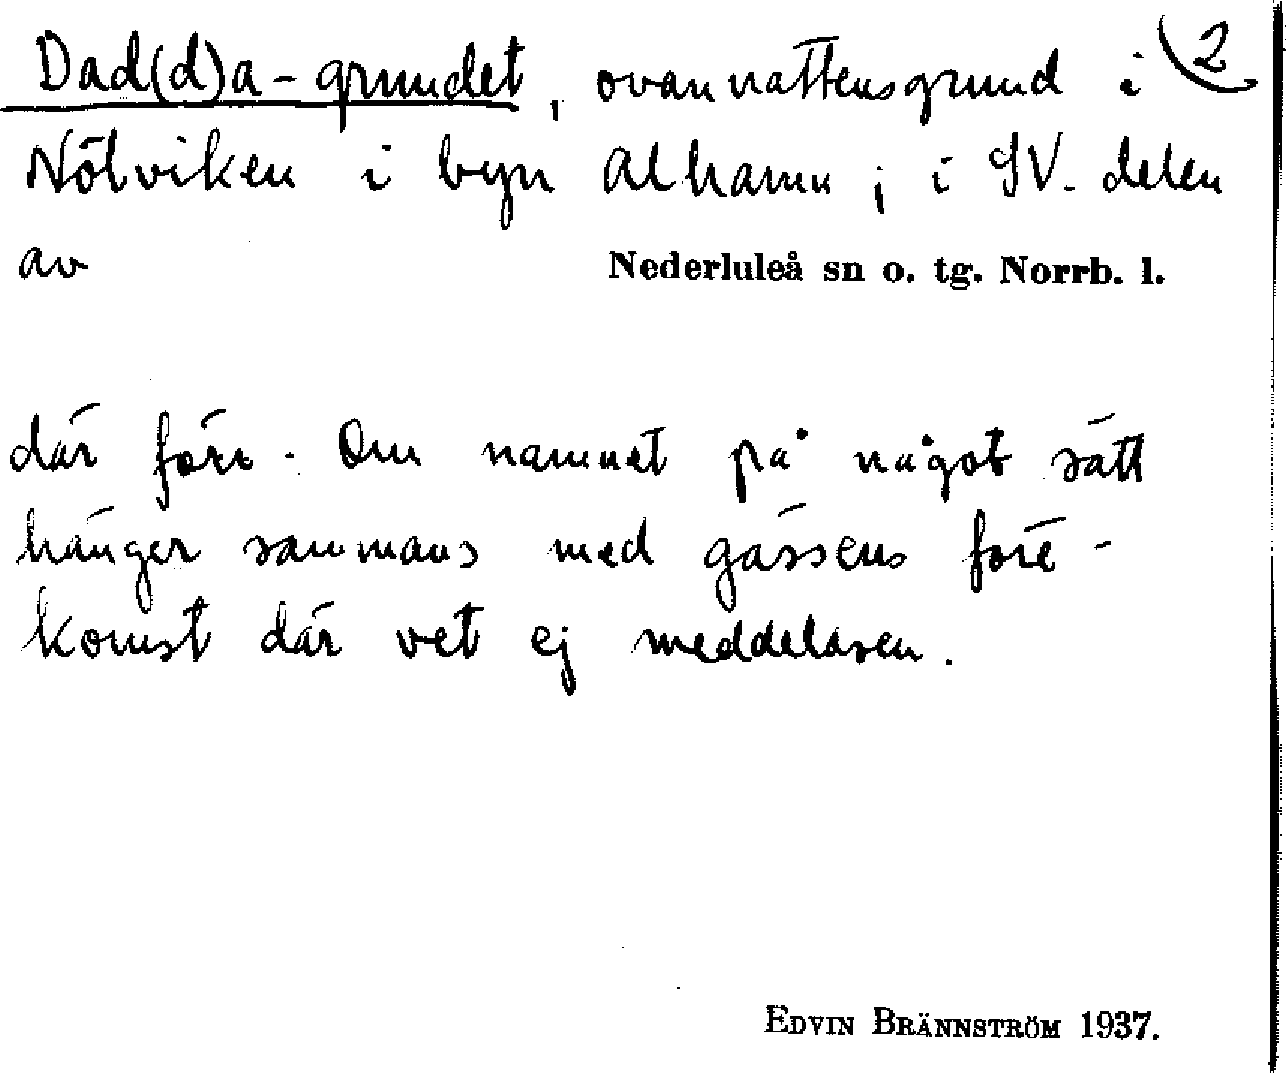 Dad(d)a-grundet, ovanvattensgrund i 2
Nötviken i byn Alhamn; i SV. delen
av Nederluleå sn o. tg. Norrb. l.
där före. Om namnet på något sätt
hänger sammans med gässens före-
komst där vet ej meddelaren.
EDVIN BRÄNNSTRÖM 1937.